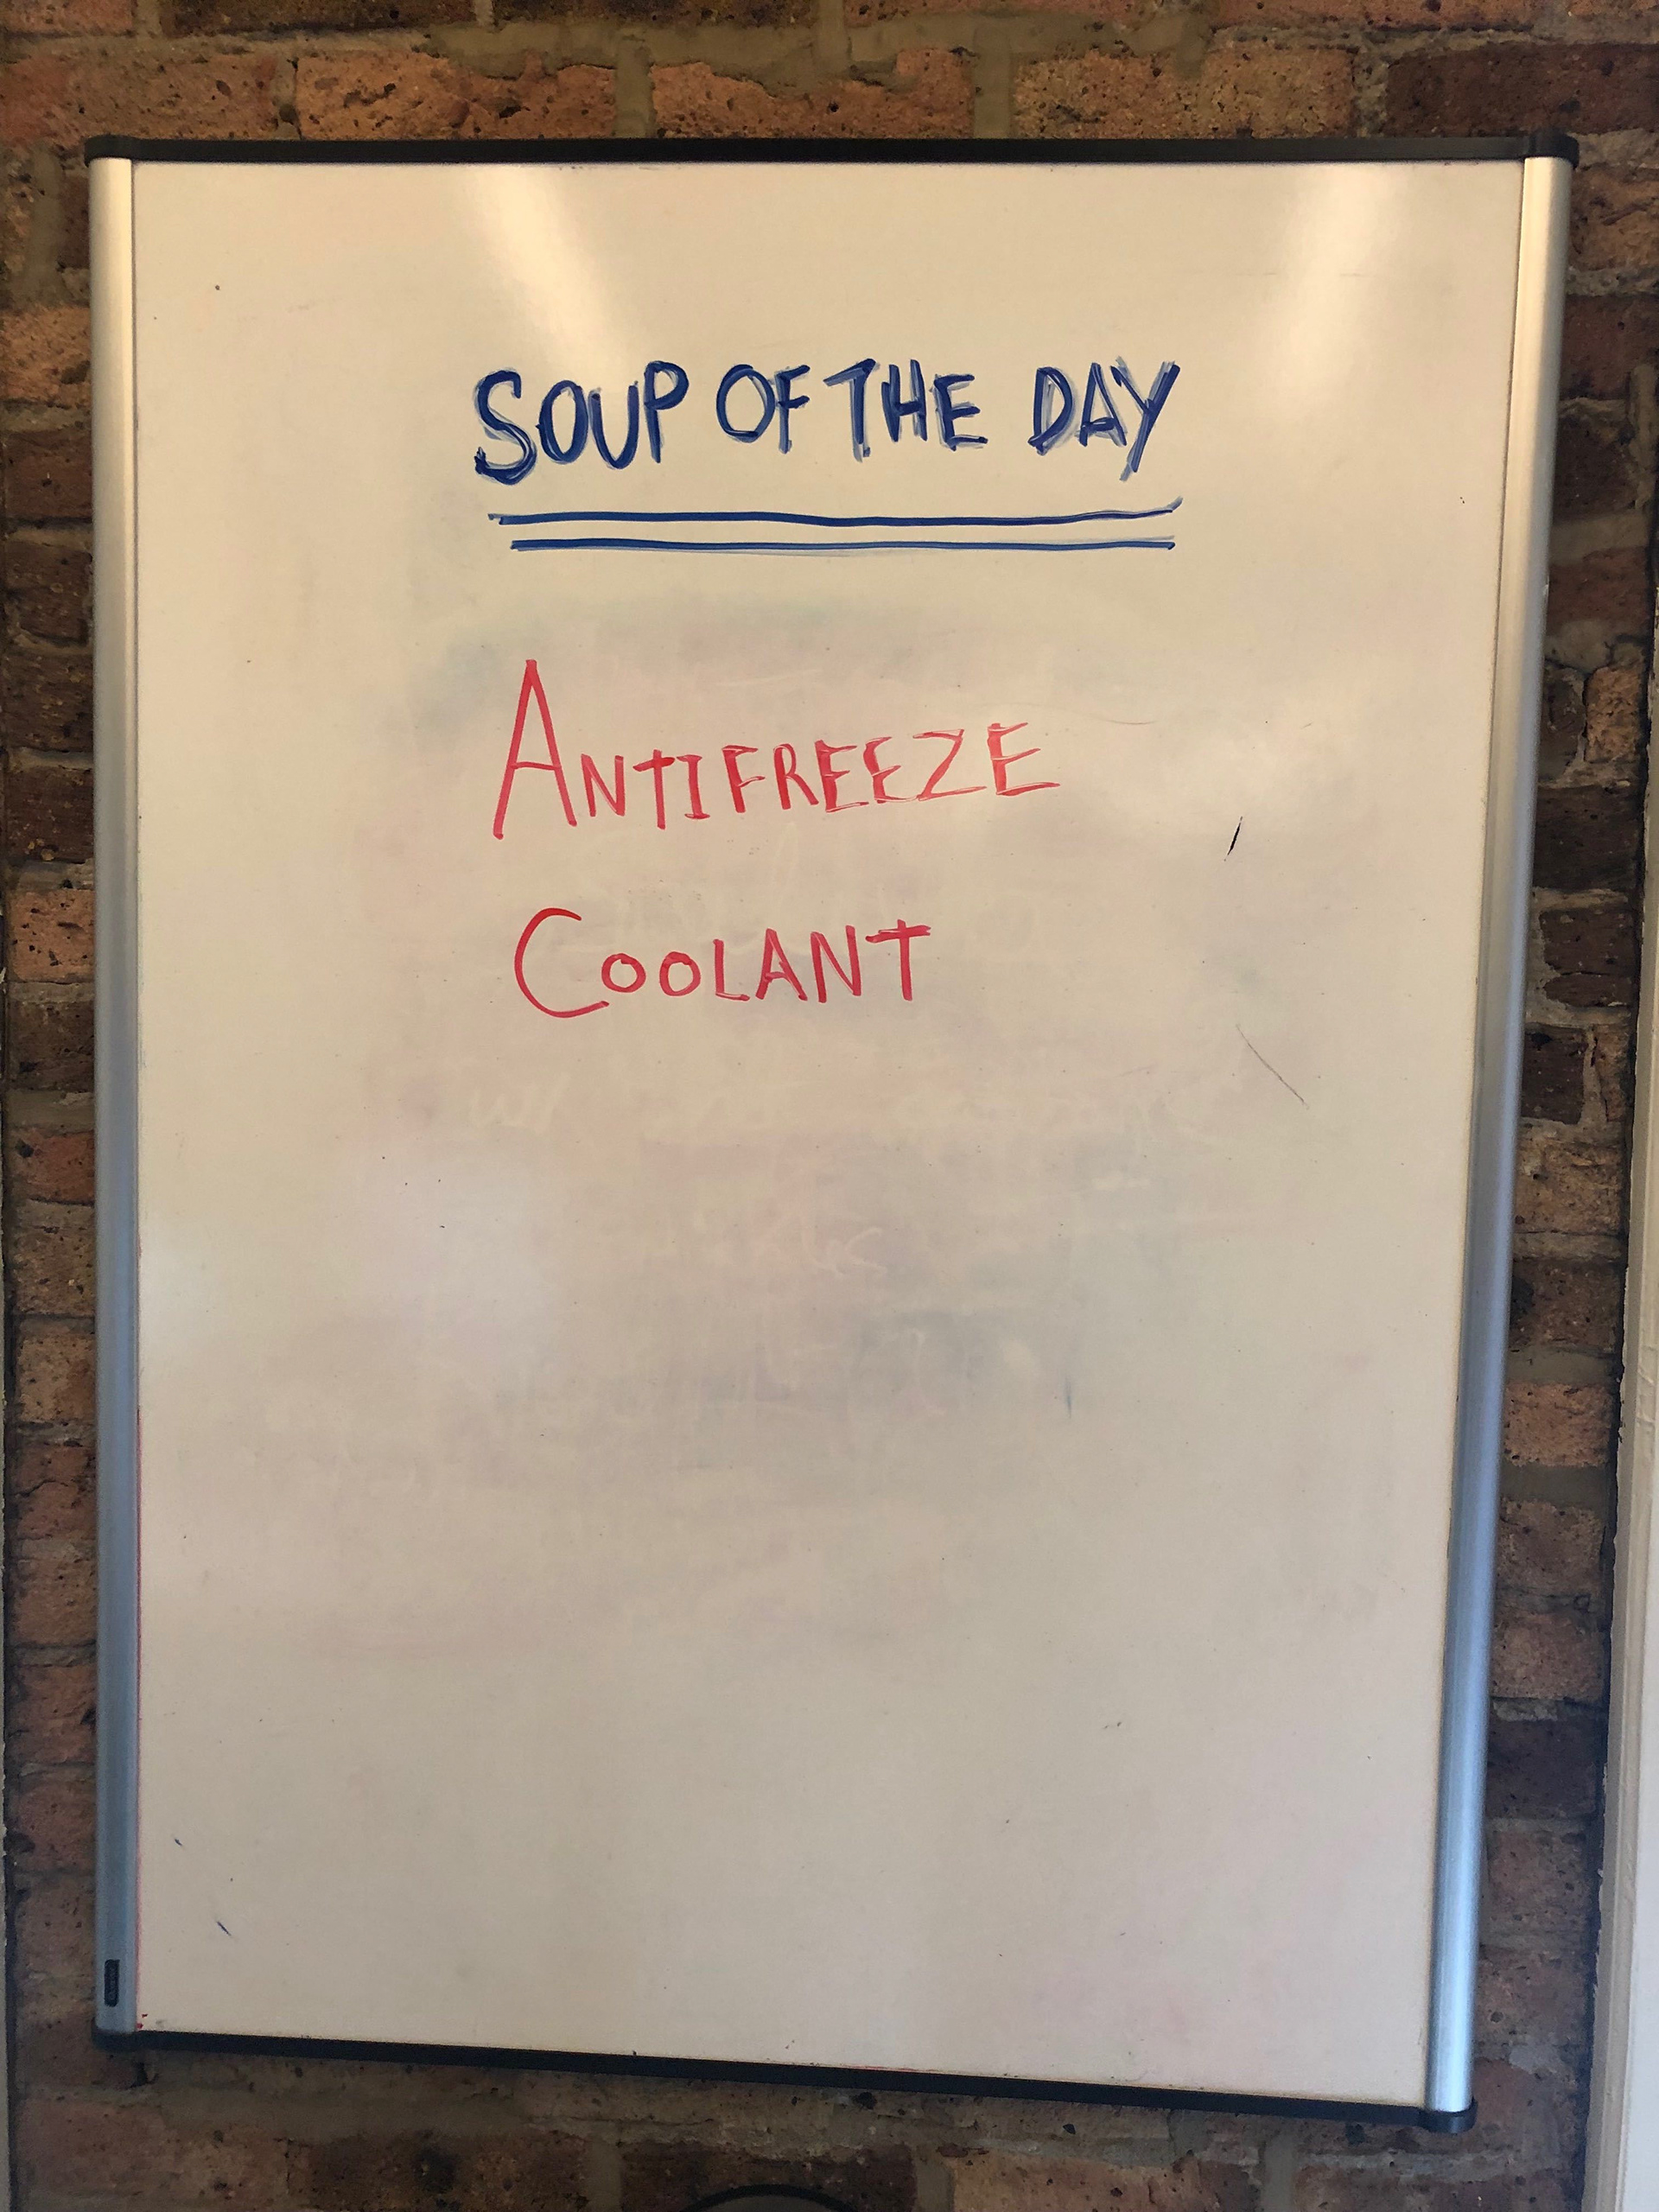 SOUP OF THE DAY
ANTIFREEZE
COOLANT